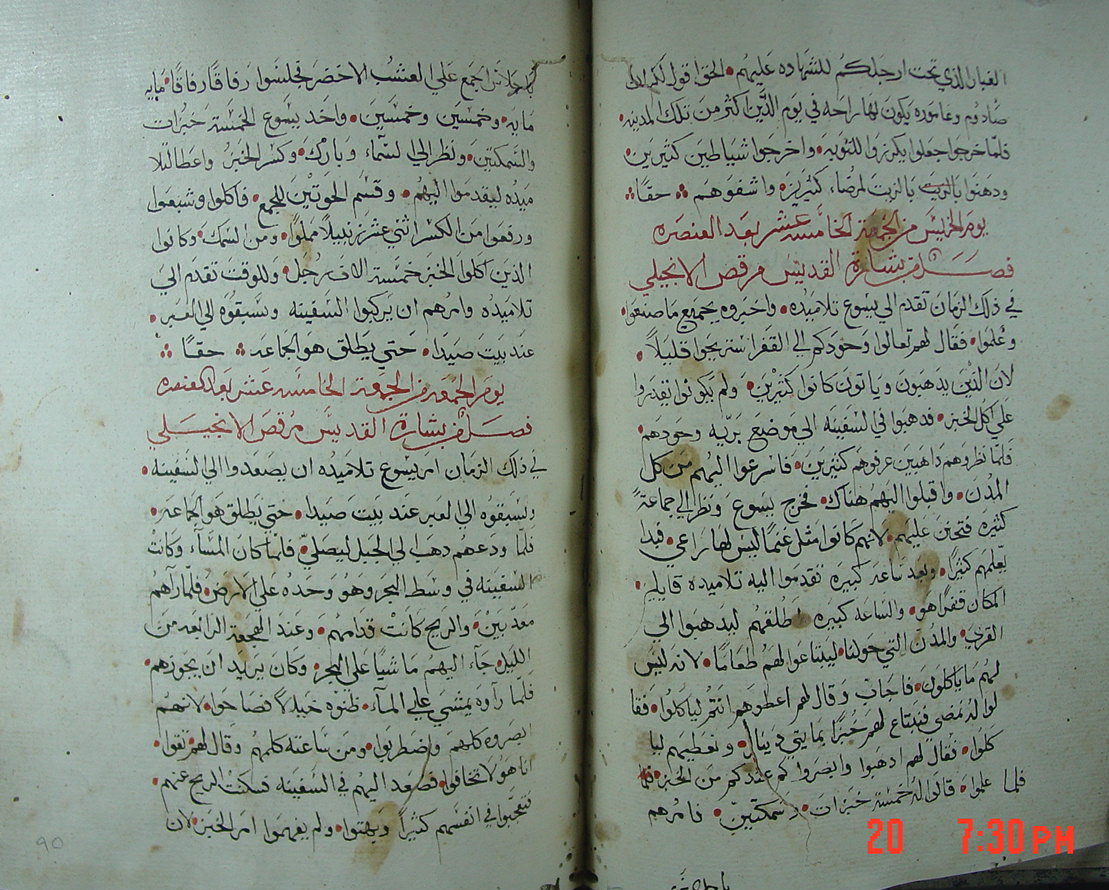 الغبار الذي تحت ارجلكم للشهاده عليهم • الحق اقول لكم ان
صادوم وعاموره يكون لها راحه في يوم الدين اكثر من تلك المدينه •
فلما خرجوا جعلوا يكرزوا للتوبه • واخرجوا شياطين كثيرين •
ودهنوا بالزيت بالزيت لمرضاء كثيرين • واشفوهم ⁘ حقا ⁘
يوم الخميس من الجمعة الخامسه عشر بعد العنصره
فصل من بشارة القديس مرقص الانجيلي
في ذلك الزمان تقدم الي يسوع تلاميذه • واخبروه بجميع ما صنعوا •
وعلموا • فقال لهم تعالوا وحودكم الي القفر استريحوا قليلاً •
لان الذين يدهبون وياتون كانوا كثيرين • ولم يكونوا يقدروا
علي اكل الخبز • فدهبوا في السفينه الي موضع بريه وحودهم •
فلما نظروهم داهبين عرفوهم كثيرين • فاسرعوا اليهم من كل
المدن • واقبلوا اليهم هناك • فخرج يسوع ونظر الي جماعةً
كثيره فتحنن عليهم • لانهم كانوا مثل غنماً ليس لها راعي • فبدا
يعلمهم كثيراً • وبعد ساعه كبيره تقدموا اليه تلاميذه قايلين •
المكان قفراً هو • والساعه كبيره • اطلقهم ليدهبوا الي
القري • والمدن التي حولنا • ليبتاعوا لهم طعاما • لانه ليس
لهم ما ياكلون • فاجاب وقال لهم اعطوهم انتم لياكلوا • فقا
لوا له نمضي فنبتاع لهم خبزاً بمايتي دينار • ونعطيهم ليا
كلوا • فقال لهم ادهبوا وابصروا كم عندكم من الخبز • فلما
علموا • قالوا له خمسة خبزات • وسمكتين • فامرهم
الجمع علي العشب الاخضر فجلسوا رفاقا رفاقا • مايه
مايه • وخمسين وخمسين • واخد يسوع الخمسة خبزات
والسمكتين • ونظر الي السماء وبارك • وكسر الخبز واعطا لتلا
ميده ليقدموا اليهم • وقسم الحوتين للجمع • فاكلوا وشبعوا
ورفعوا من الكسر اثني عشر زنبيلاً مملوا • ومن السمك • وكانوا
الذين اكلوا الخبز خمسة الاف رجل • وللوقت تقدم الي
تلاميذه وامرهم ان يركبوا السفينه ويسبقوه الي العبر •
عند بيت صيدا • حتي يطلق هو الجماعه ⁘ حقا ⁘
يوم الجمعه من الجمعة الخامسه عشر بعد العنصره
فصل من بشارة القديس مرقص الانجيلي
في ذلك الزمان امر يسوع تلاميذه ان يصعدوا الي السفينه •
ويسبقوه الي العبر عند بيت صيدا • حتي يطلق هو الجماعه •
فلما ودعهم دهب الي الجبل ليصلي • فلما كان المساء وكانت
السفينه في وسط البحر وهو وحده علي الارض • فلما رآهم
معدبين • والريح كانت قدامهم • وعند الهجعة الرابعه من
الليل • جاء اليهم ماشيا علي البحر • وكان يريد ان يجوزهم •
فلما راوه يمشي علي الماء • ظنوه خيالاً فصاحوا • لانهم
ابصروه كلهم واضطربوا • ومن ساعته كلمهم وقال لهم ثقوا •
انا هو لا تخافوا • فصعد اليهم في السفينه فسكنت الريح عنهم •
فتعجبوا في انفسهم كثيراً وبهتوا • ولم يفهموا امر الخبز • لان
90
20 7:30 PM